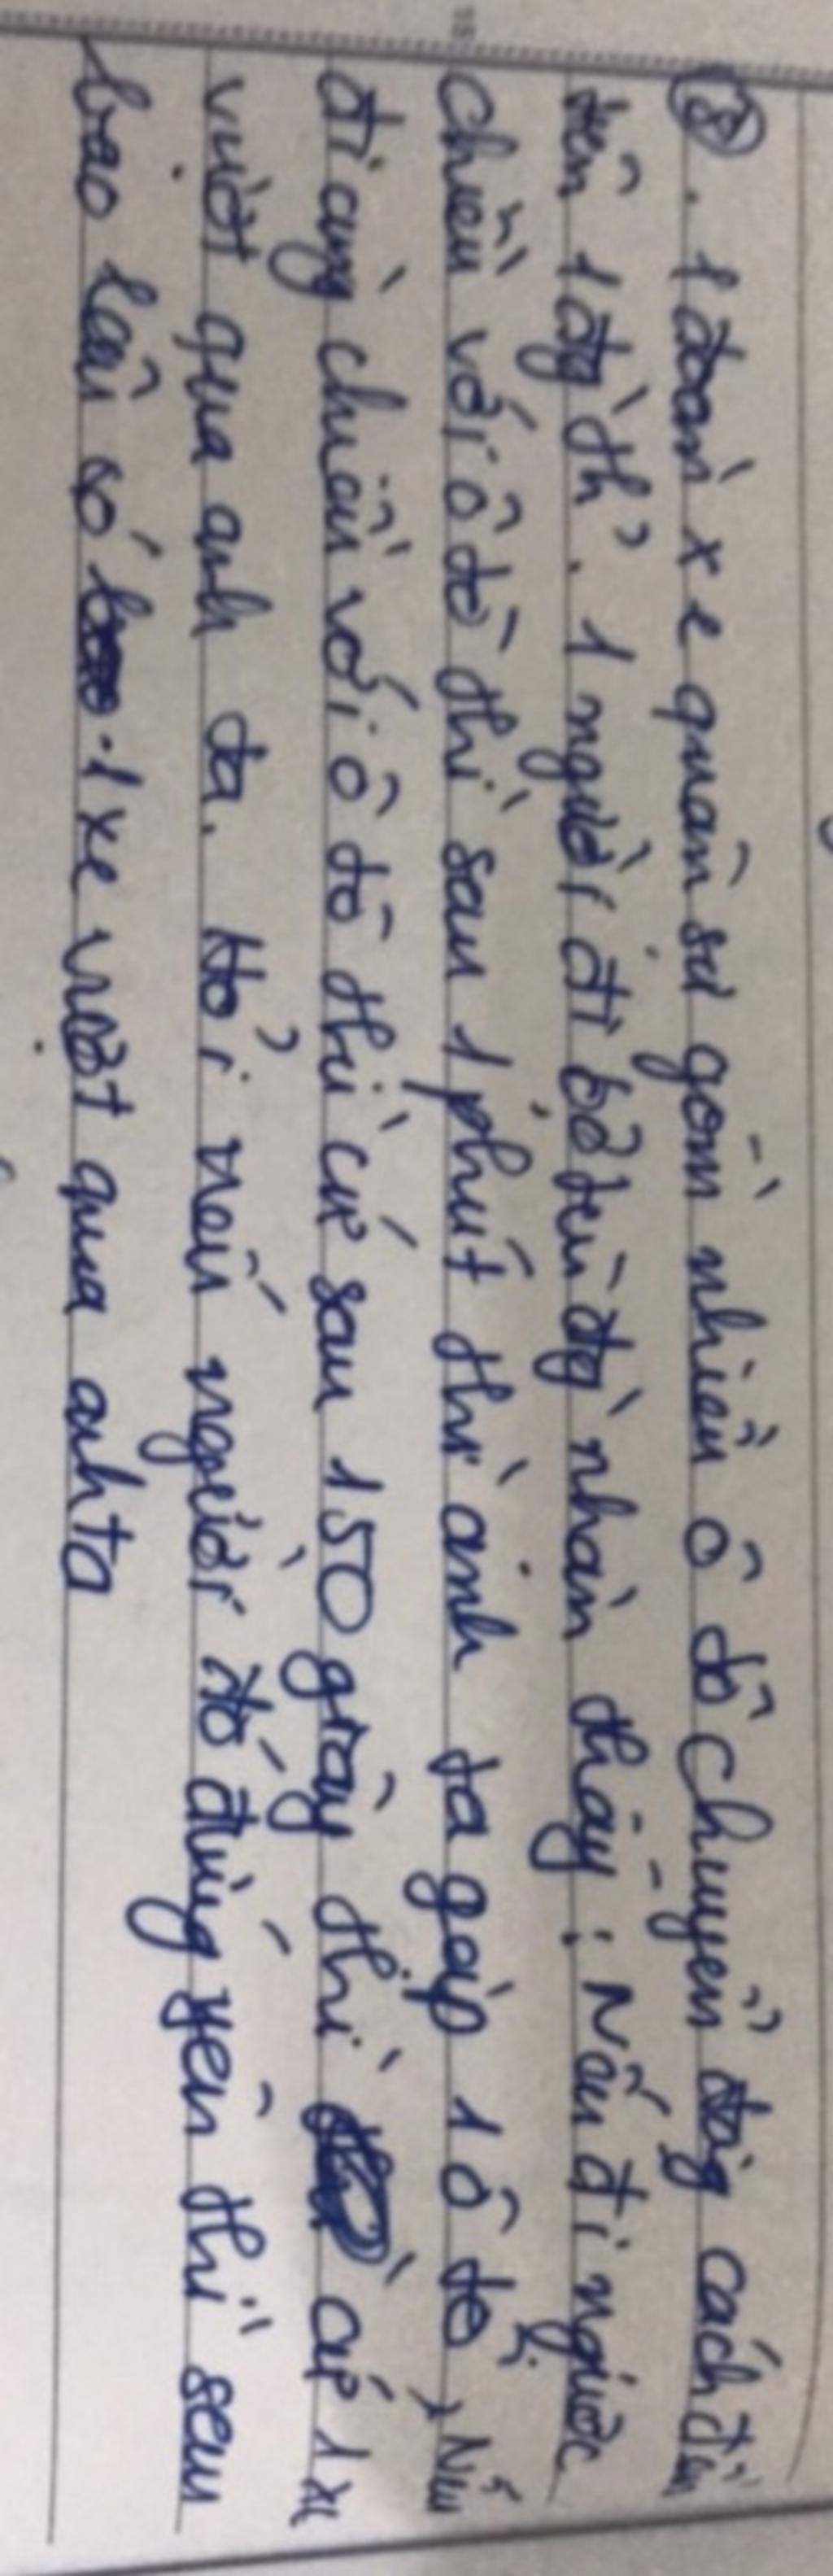 ⑧. 1 đoàn xe quân sự gồm nhiều ô tô chuyển động cách đều
trên 1 đg th̉. 1 người đi bộ trên đg nhận thấy: Nếu đi ngược
chiều với ô tô thì sau 1 phút thì anh ta gặp 1 ô tô, Nếu
đi cùng chiều với ô tô thì cứ sau 150 giây thì cứ 1 xe
vượt qua anh ta. Hỏi nếu người đó đứng yên thì sau
bao lâu số 1 xe vượt qua anh ta
15